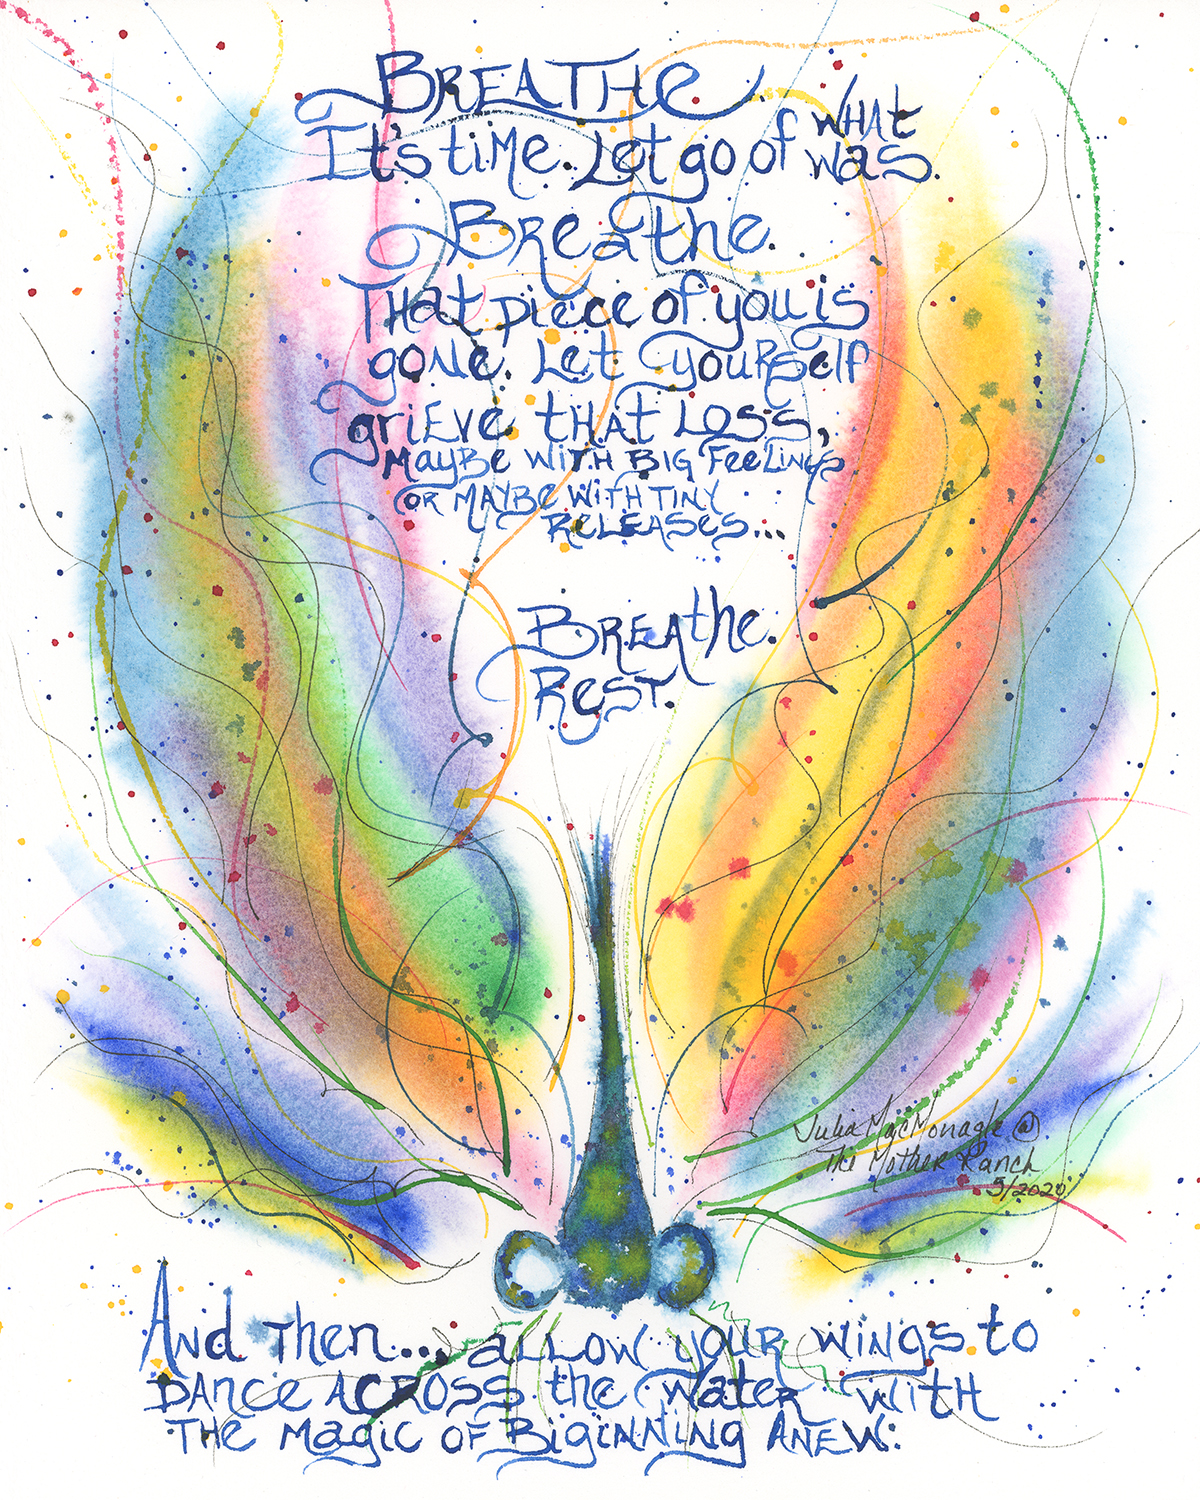 BREATHE.
It's time. Let go of what was.
Breathe.
That piece of you is
gone. Let yourself
grieve that loss,
maybe with big feelings
or maybe with tiny
releases...
Breathe.
Rest.
Julia MacMonagle @
The Mother Ranch
5/2020
And then... allow your wings to
dance across the water with
the magic of Biginning anew.